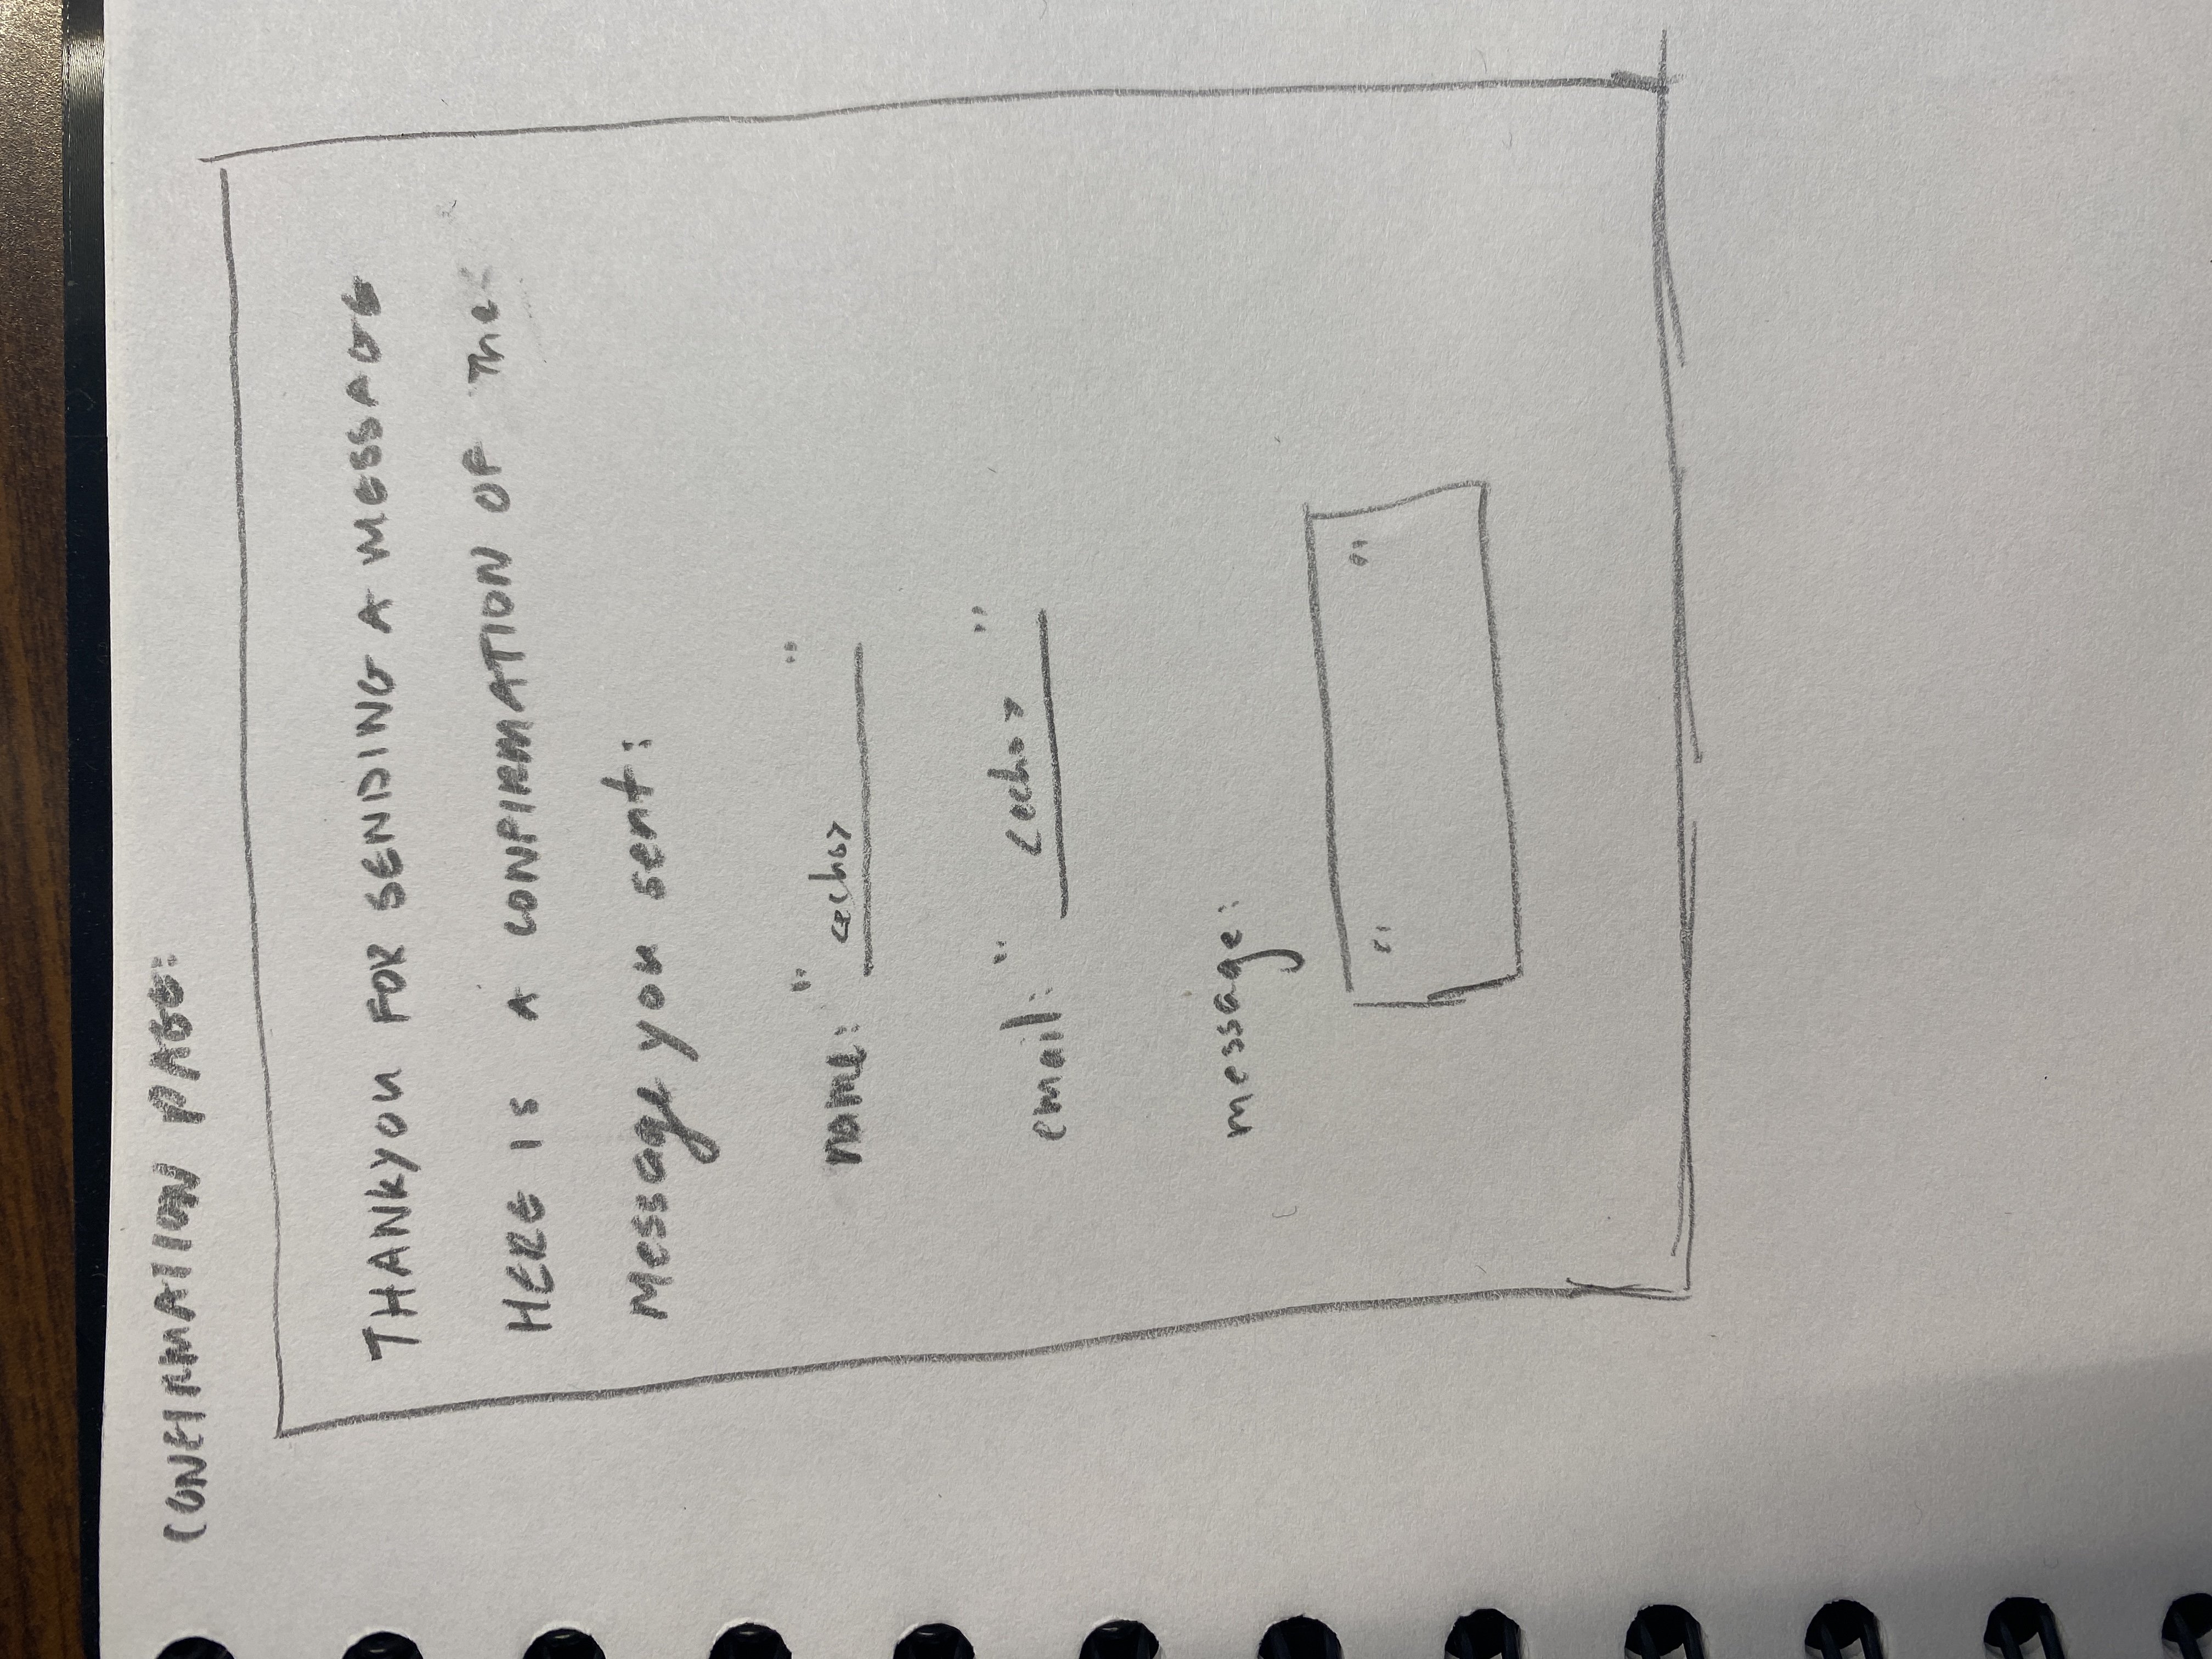 CONFIRMATION PAGE:
THANKYOU FOR SENDING A MESSAGE
HERE IS A CONFIRMATION OF The
Message you sent:
name: "<echo>"
email: "<echo>"
message:
" "